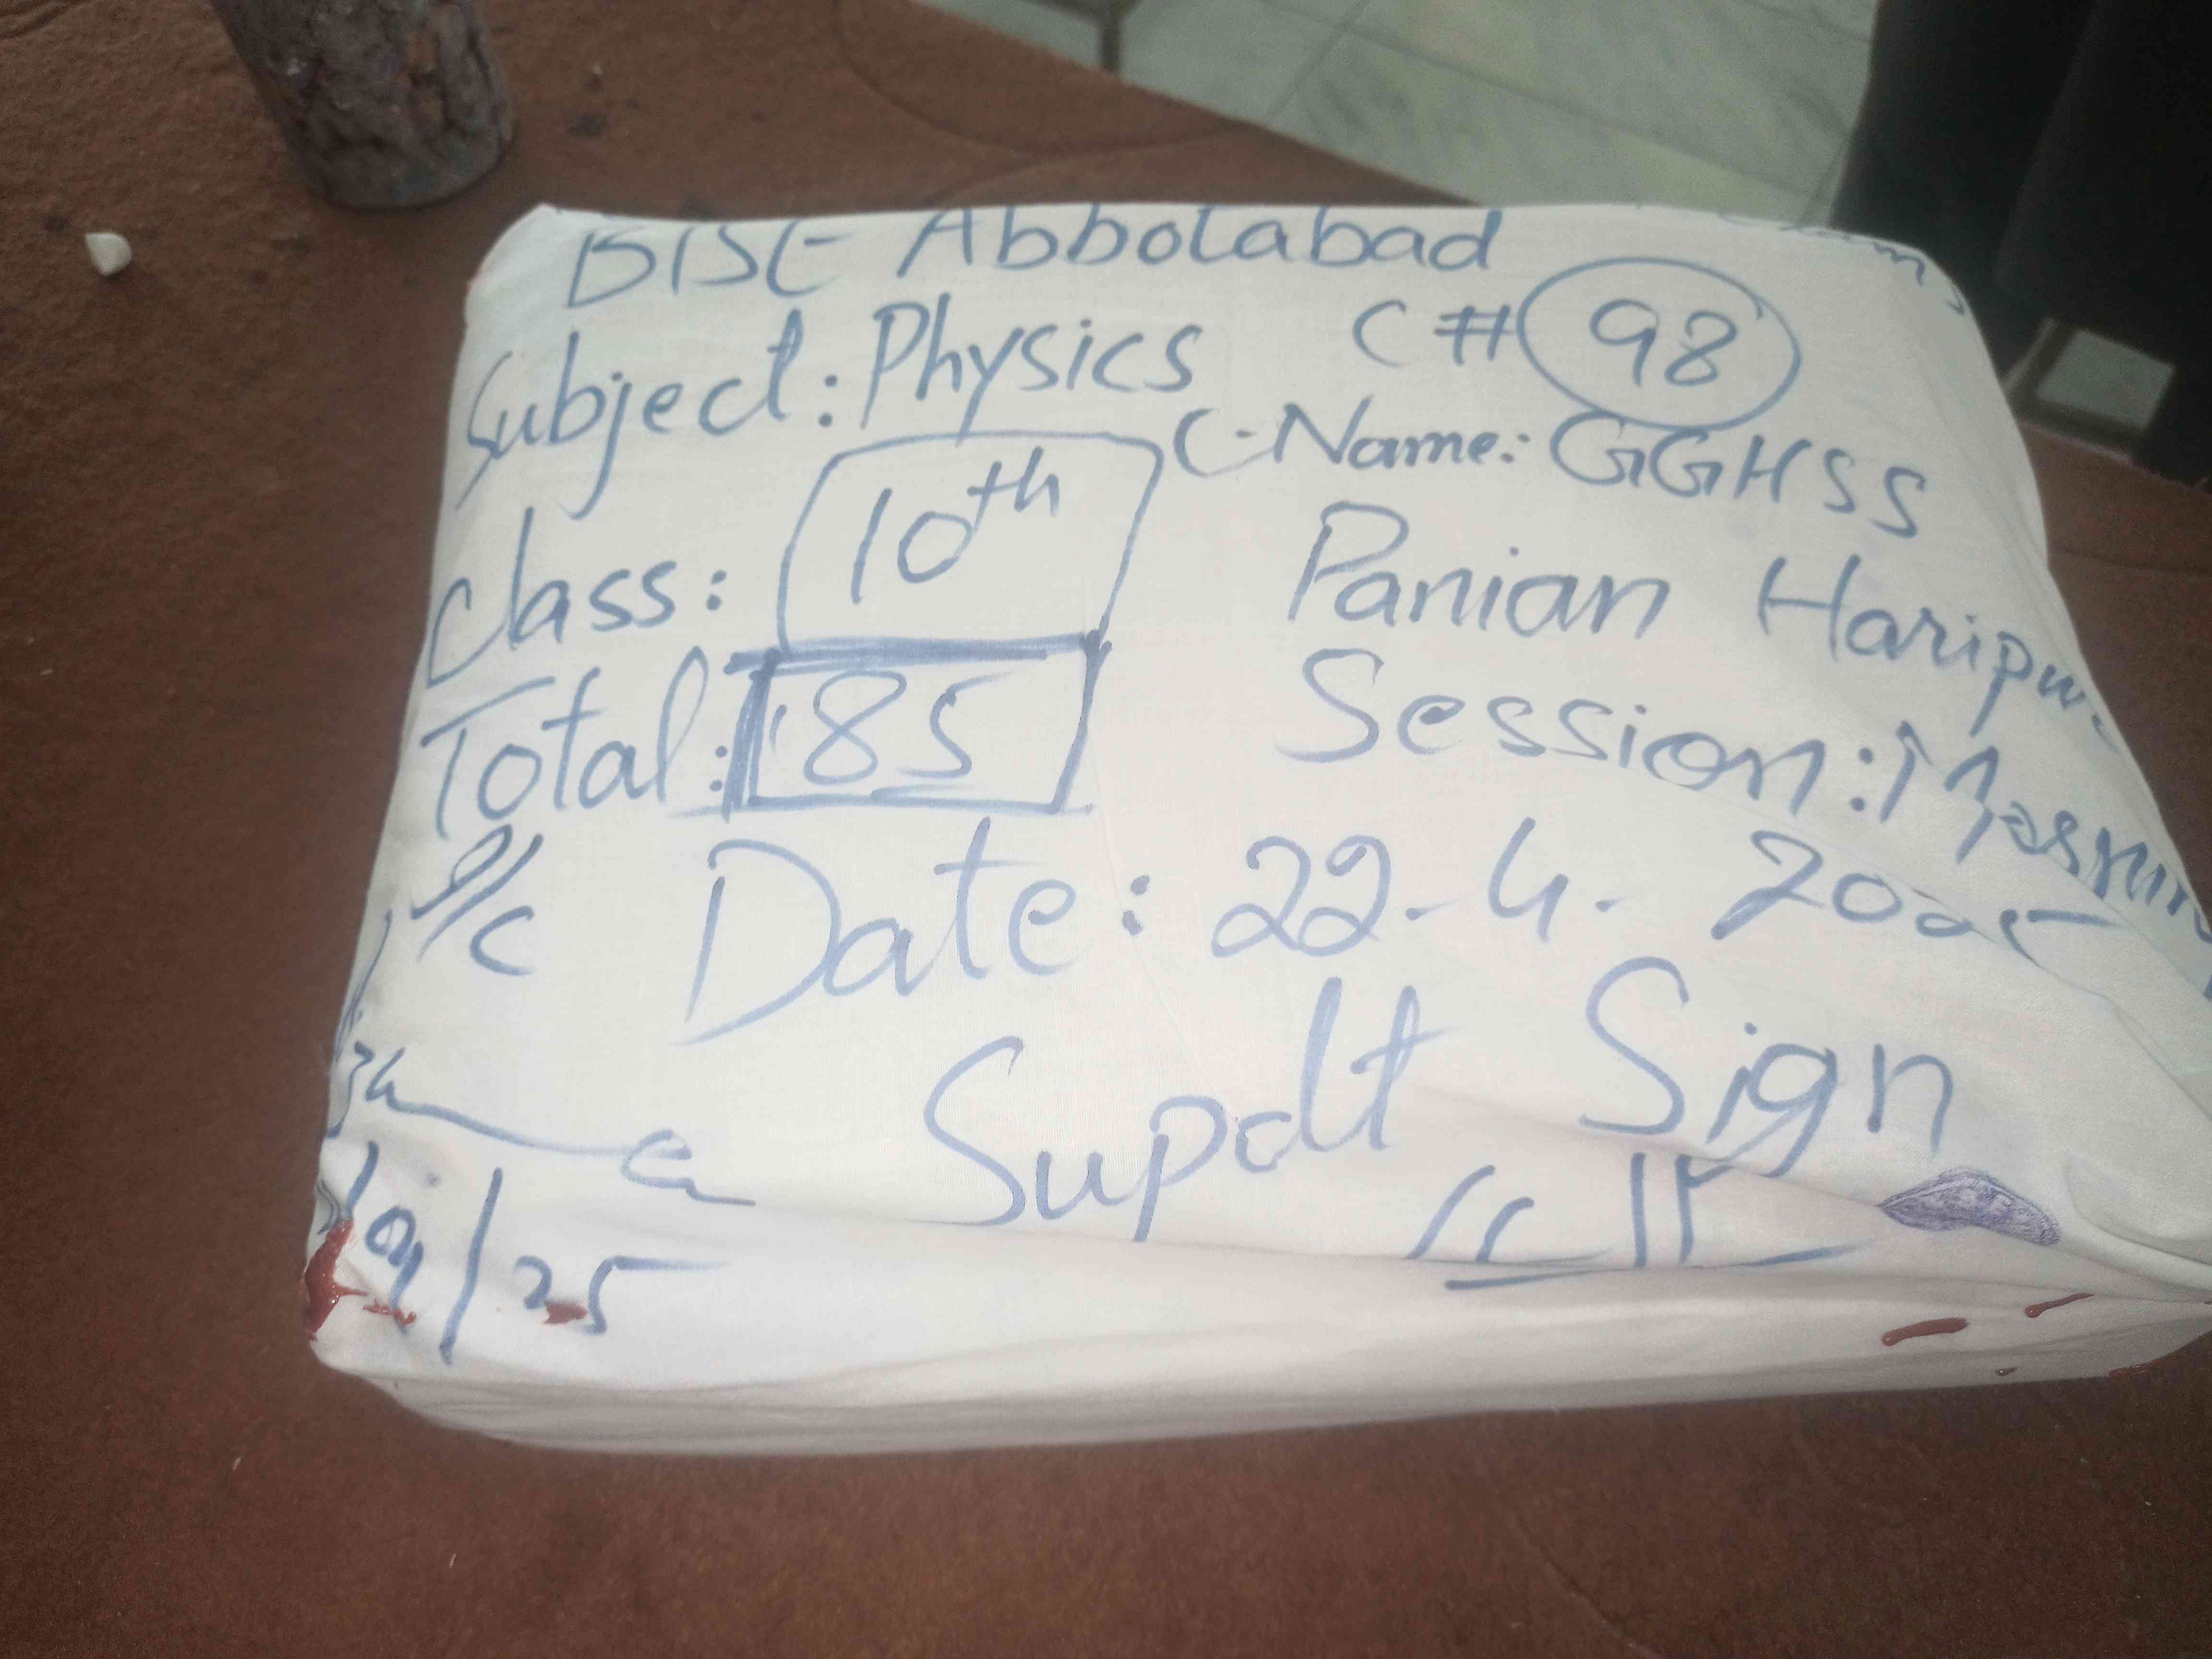 BISE Abbotabad
Subject: Physics C# 98
C-Name: GGHSS
Class: 10th Panian Haripur
Total: 85 Session: Morning
Date: 22-4-2025
Supdt Sign
/04/25